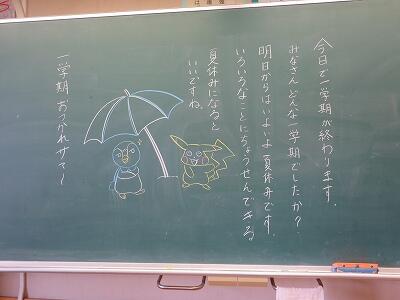 今日で一学期が終わります。
みなさんどんな一学期でしたか？
明日からはいよいよ夏休みです。
いろいろなことにちょうせんできる
夏休みになると
いいですね。
一学期 おつかれサマ〜